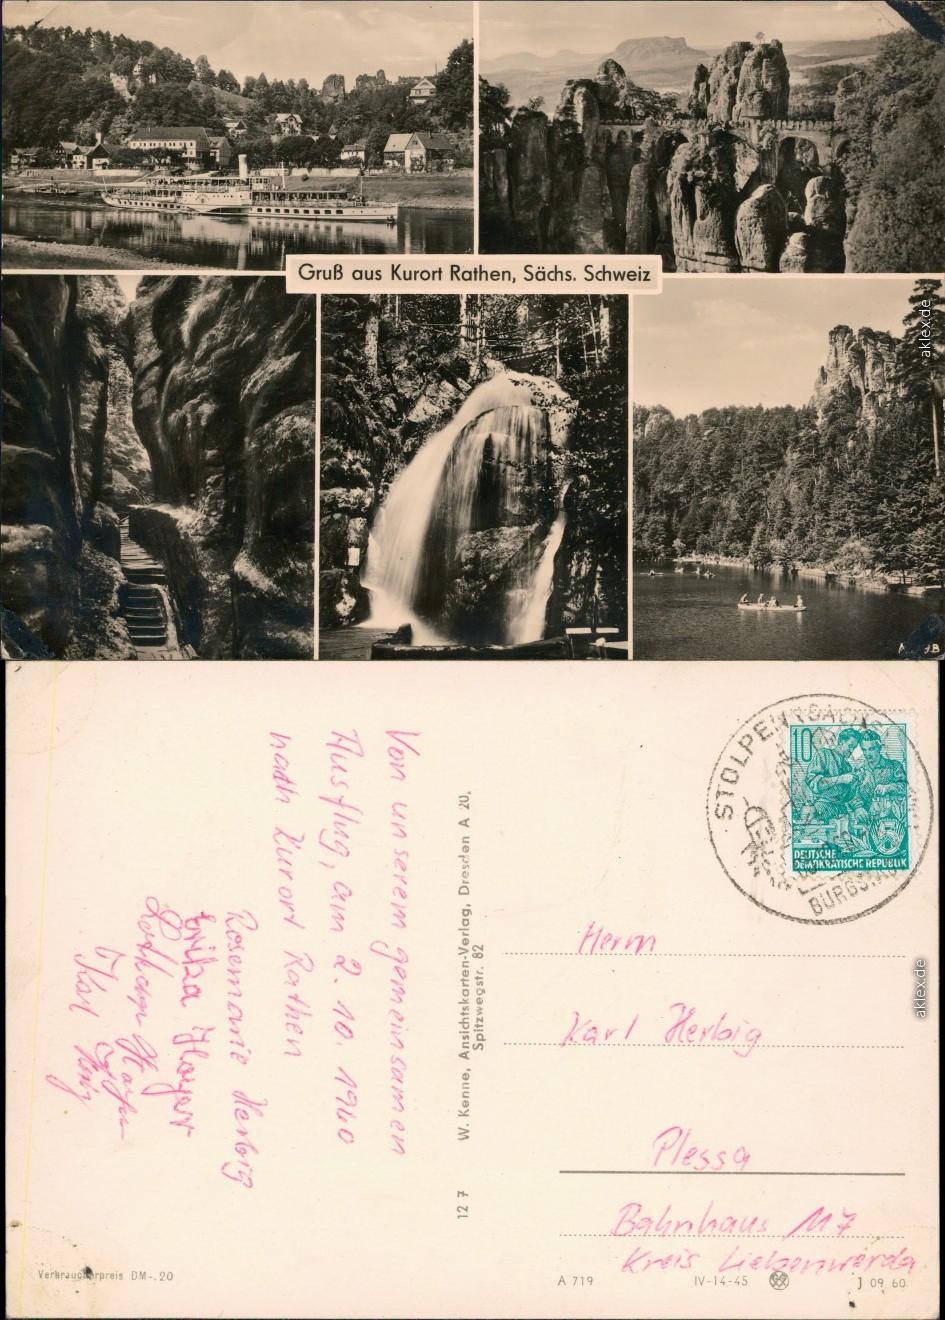 Gruß aus Kurort Rathen, Sächs. Schweiz
aklex.de
Von unserem gemeinsamen
Ausflug, am 2. 10. 1960
nach Kurort Rathen
Rosemarie Herbig
Erika Hoyer
Karl
W. Kenne, Ansichtskarten-Verlag, Dresden A 20,
Spitzwegstr. 82
12 7
STOLPEN (SACHS
BURGSTADT
10
5
DEUTSCHE
DEMOKRATISCHE REPUBLIK
Herrn
Karl Herbig
Plessa
Bahnhaus 117
Kreis Liebenwerda
aklex.de
Verbraucherpreis DM -.20
A 719
IV-14-45
J 09 60